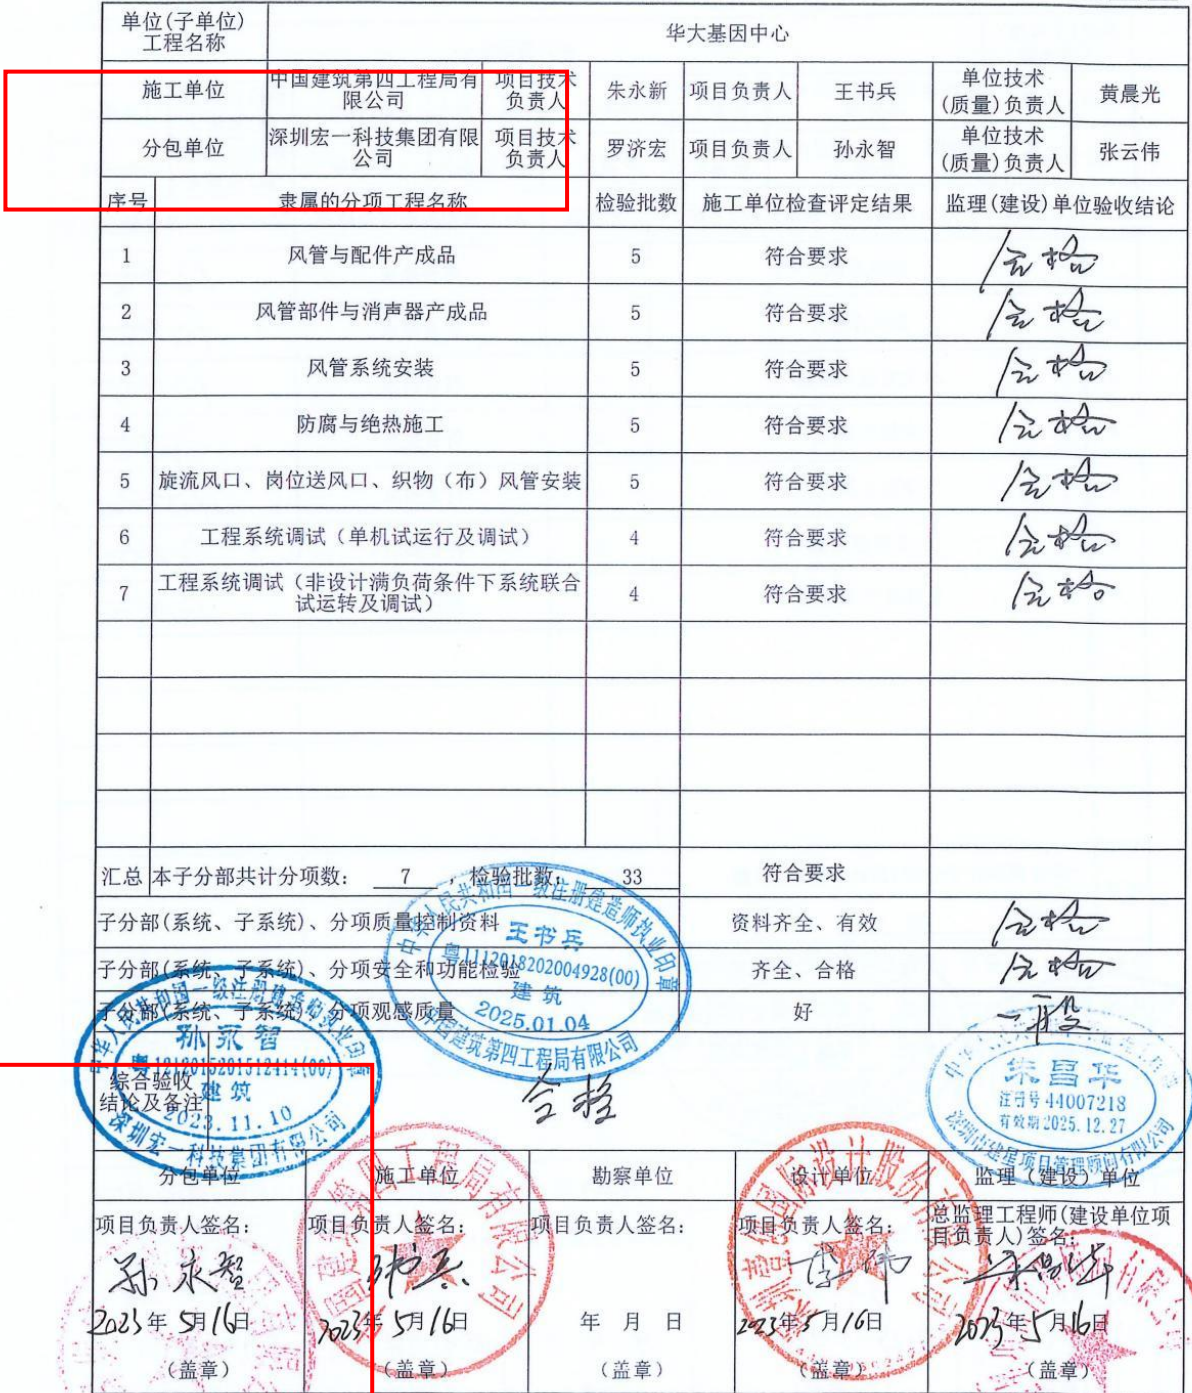 单位(子单位)
工程名称
华大基因中心
施工单位
中国建筑第四工程局有
限公司
项目技术
负责人
朱永新
项目负责人
王书兵
单位技术
(质量)负责人
黄晨光
分包单位
深圳宏一科技集团有限
公司
项目技术
负责人
罗济宏
项目负责人
孙永智
单位技术
(质量)负责人
张云伟
序号 隶属的分项工程名称 检验批数 施工单位检查评定结果 监理(建设)单位验收结论
1 风管与配件产成品 5 符合要求 合格
2 风管部件与消声器产成品 5 符合要求 合格
3 风管系统安装 5 符合要求 合格
4 防腐与绝热施工 5 符合要求 合格
5 旋流风口、岗位送风口、织物（布）风管安装 5 符合要求 合格
6 工程系统调试（单机试运行及调试） 4 符合要求 合格
7 工程系统调试（非设计满负荷条件下系统联合
试运转及调试） 4 符合要求 合格
汇总 本子分部共计分项数： 7 ，检验批数： 33 符合要求
子分部(系统、子系统)、分项质量控制资料 资料齐全、有效 合格
子分部(系统、子系统)、分项安全和功能检验 齐全、合格 合格
子分部(系统、子系统)、分项观感质量 好 一般
中华人民共和国一级注册建造师执业印章
王书兵
粤1112018202004928(00)
建筑
2025.01.04
中国建筑第四工程局有限公司
中华人民共和国一级注册建造师执业印章
孙永智
建筑
2023.11.10
深圳宏一科技集团有限公司
综合验收
结论及备注
合格
朱昌华
注册号 44007218
有效期 2025.12.27
分包单位 施工单位 勘察单位 设计单位 监理（建设）单位
项目负责人签名：
孙永智
2023年5月16日
（盖章）
项目负责人签名：
2023年5月16日
（盖章）
项目负责人签名：
年 月 日
（盖章）
项目负责人签名：
2023年5月16日
（盖章）
总监理工程师(建设单位项
目负责人)签名：
朱昌华
2023年5月16日
（盖章）